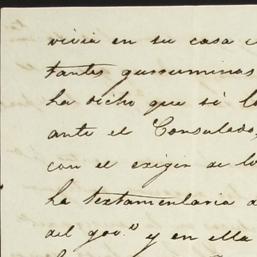 vivia en su casa
tantes gurruminas
ha dicho que si lo
ante el Consulado,
con el exigir de lo
la testamentaria
del gov.º y en ella